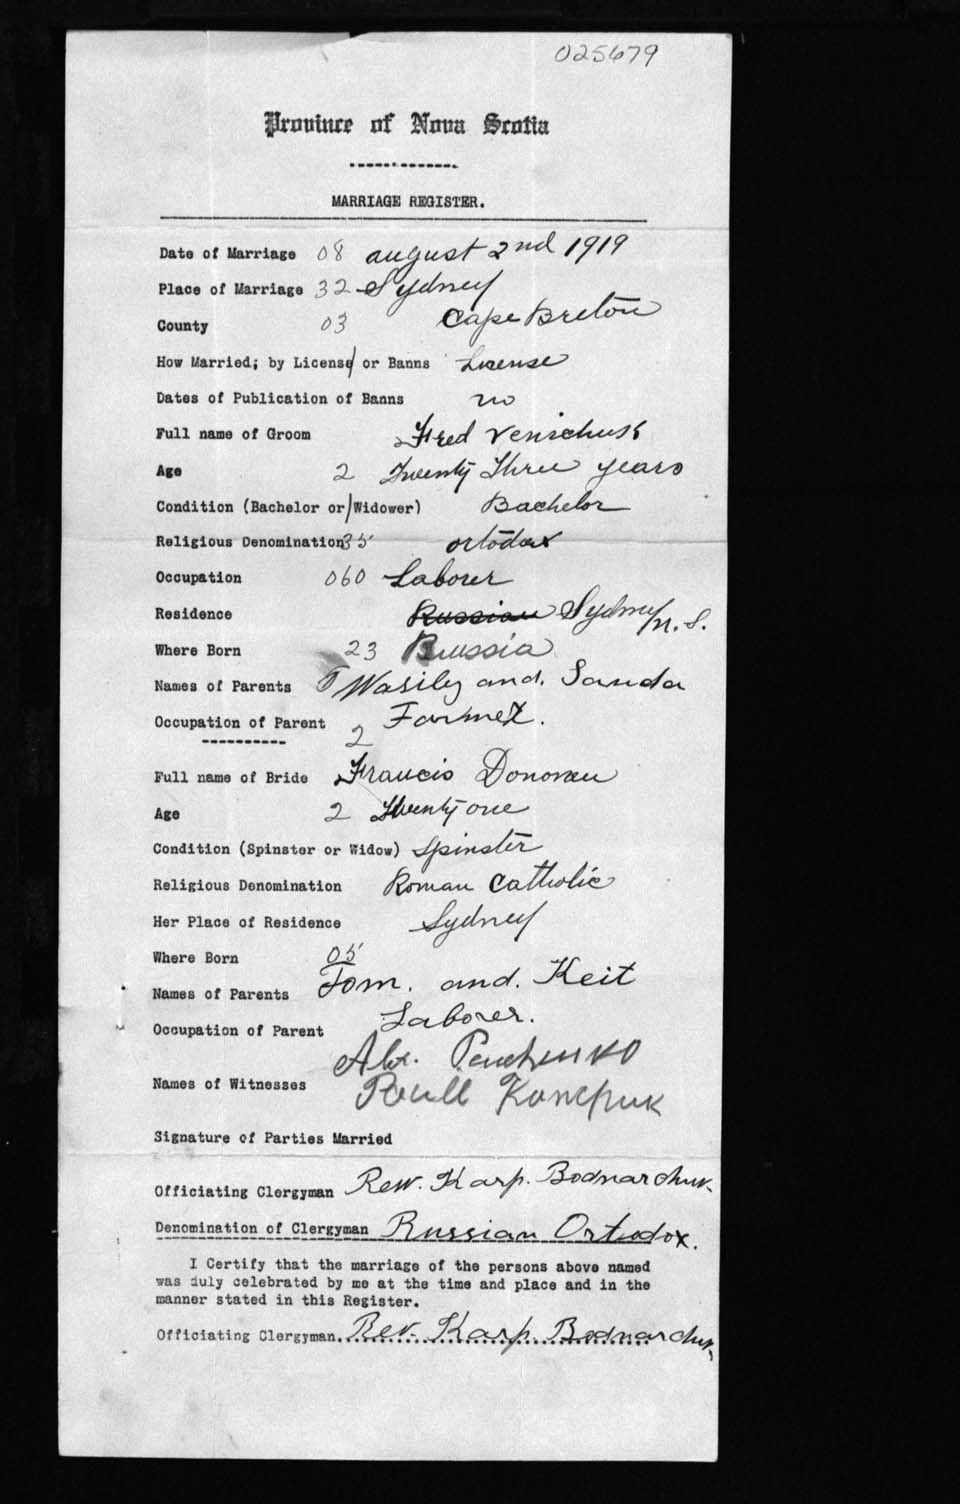 025679
Province of Nova Scotia
MARRIAGE REGISTER.
Date of Marriage 08 august 2nd 1919
Place of Marriage 32 Sydney
County 03 Cape Breton
How Married; by License/ or Banns License
Dates of Publication of Banns no
Full name of Groom Fred
Age 2 Twenty Three years
Condition (Bachelor or/Widower) Bachelor
Religious Denomination 35 ortodox
Occupation 060 Laborer
Residence Russian Sydney N.S.
Where Born 23 Russia
Names of Parents Wasily and. Sanda
Occupation of Parent Farmer.
2
Full name of Bride Francis Donovan
Age 2 Twenty one
Condition (Spinster or Widow) Spinster
Religious Denomination Roman Catholic
Her Place of Residence Sydney
Where Born 05
Names of Parents Tom. and. Keit
Occupation of Parent Laborer.
Names of Witnesses
Signature of Parties Married
Officiating Clergyman Rev. Karp. Bodnarchuk
Denomination of Clergyman Russian Ortodox.
I Certify that the marriage of the persons above named
was duly celebrated by me at the time and place and in the
manner stated in this Register.
Officiating Clergyman. Rev. Karp. Bodnarchuk